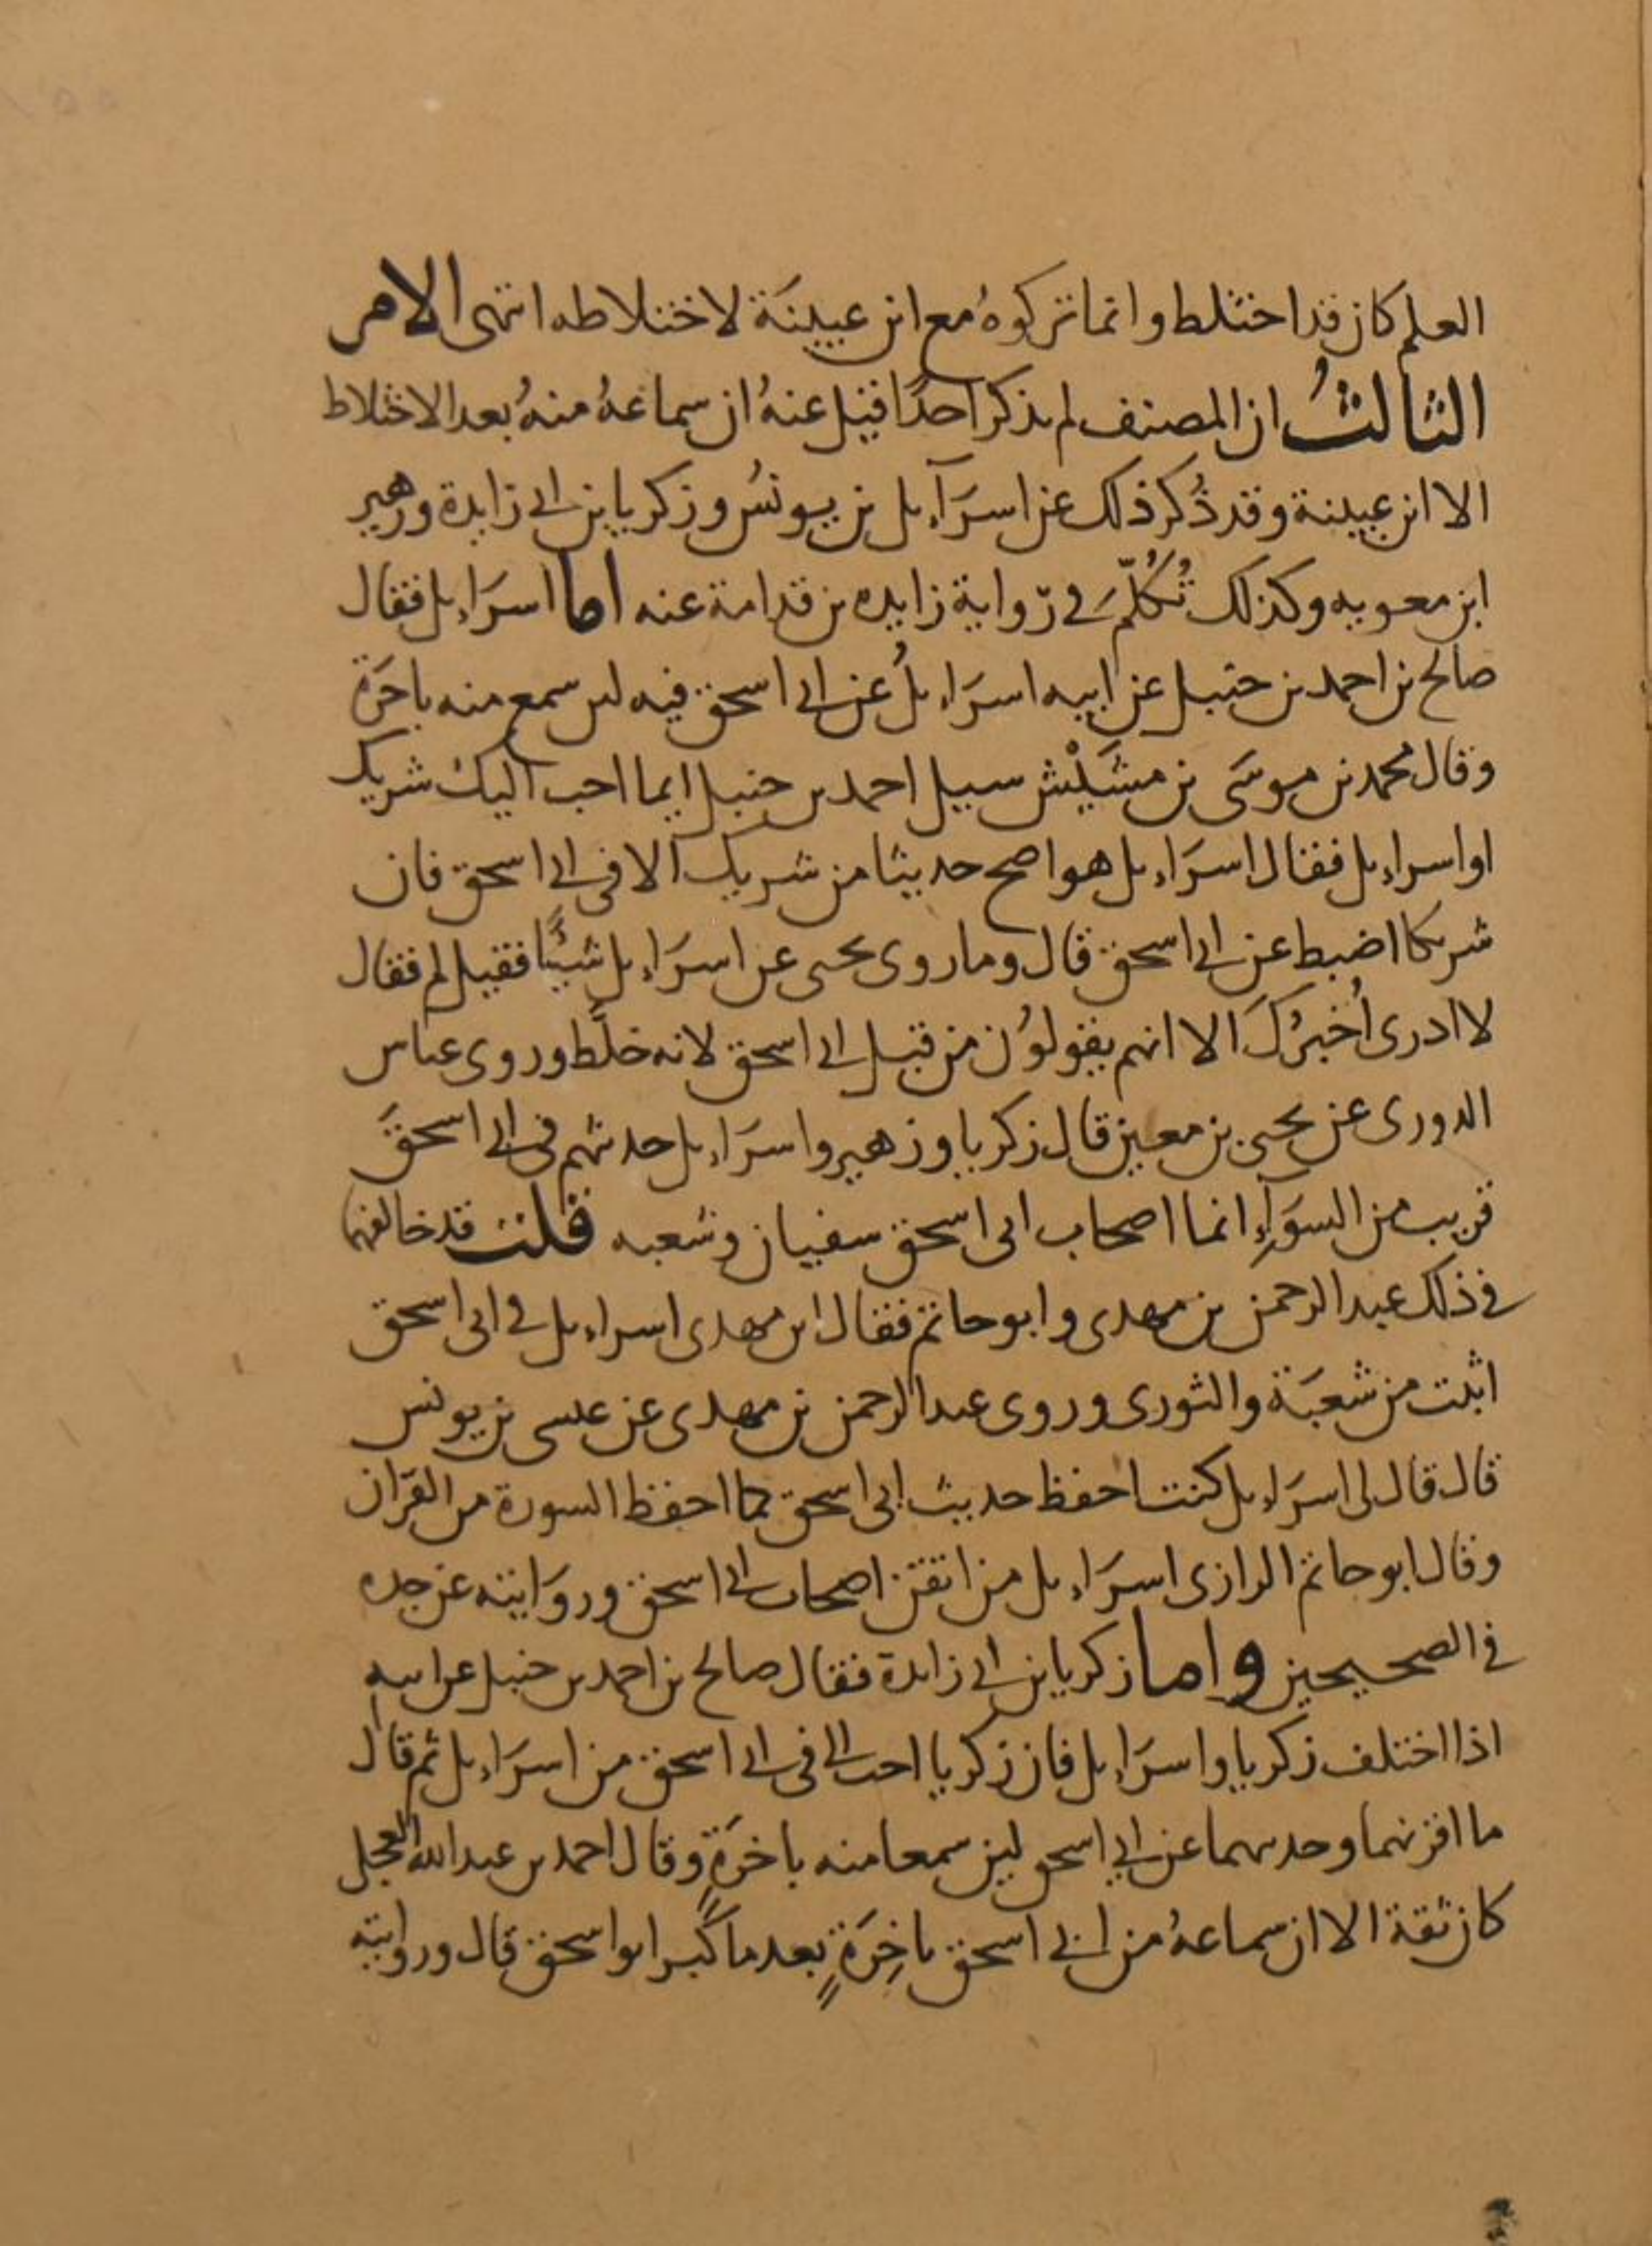 العلم كان قد اختلط وانما تركوهُ مع ابن عيينَة لاختلاطه انتهى الامر
الثالثُ ان المصنف لم يذكر احدًا قيل عنهُ ان سماعهُ منهُ بعد الاختلاط
الا ابن عيينة وقد ذُكر ذلك عن اسرَآءيل بن يونسُ وزكريا بن ابي زايدة وزهير
ابن معويه وكذلك تُكُلّمَ في رّواية زايده بن قدامة عنه اما اسرَاءيل فقال
صالح بن احمد بن حنبل عن ابيه اسرَاءيلُ عن ابي اسحق فيه لين سمع منه باخرَة
وقال محمد بن موسَى بن مشَيْش سييل احمد بن حنبل ايما احب اليك شريك
او اسراءيل فقال اسرَاءيل هو اصح حديثا من شريك الا في ابي اسحق فان
شريكا اضبط عن ابي اسحق قال وما روى يحيى عن اسرَاءيل شيًئا فقيل لم فقال
لا ادرى اُخبرُكَ الا انهم يقولوُن من قبل ابي اسحق لانه خلَّط وروى عباس
الدورى عن يحيى بن معين قال زكريا وزهير واسرَاءيل حديثهم في ابي اسحقَ
قريب من السوَآءِ انما اصحاب ابى اسحق سفيان وشعبه قلت قد خالفهما
في ذلك عبد الرحمن بن مهدى وابو حاتم فقال ابن مهدى اسراءيل في ابى اسحق
اثبت من شعبَة والثورى وروى عبد الرحمن بن مهدى عن عيسى بن يونس
قال قال لى اسرَاءيل كنت احفظ حديث ابى اسحق كما احفظ السورة من القرآن
وقال ابو حاتم الرازى اسرَاءيل من اتقن اصحاب ابي اسحق وروَايته عن جده
في الصحيحين واما زكريا بن ابي زايدة فقال صالح بن احمد بن حنبل عن ابيه
اذا اختلف زكريا واسرَاءيل فان زكريا احب الي في ابي اسحق من اسرَاءيل ثم قال
ما اقربهما وحديثهما عن ابي اسحق لين سمعا منه باخرَةٍ وقال احمد بن عبد الله العجلى
كان ثقة الا ان سماعهُ من ابي اسحق باخِرَةٍ بعد ما كبر ابو اسحق قال وروايته